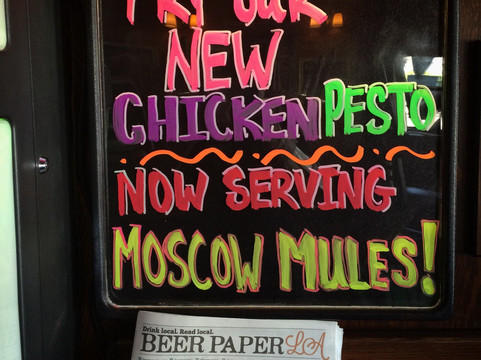 TRY OUR
NEW
CHICKEN PESTO
NOW SERVING
MOSCOW MULES!
Drink local. Read local.
BEER PAPER LA